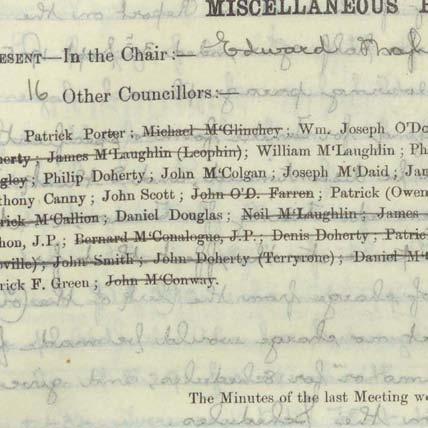 MISCELLANEOUS
ESENT—In the Chair:— Edward
16 Other Councillors:—
Patrick Porter; Michael M'Glinchey; Wm. Joseph O'Do
erty; James M'Laughlin (Leophin); William M'Laughlin; Ph
gley; Philip Doherty; John M'Colgan; Joseph M'Daid; Jam
thony Canny; John Scott; John O'D. Farren; Patrick (Owen
rick M'Callion; Daniel Douglas; Neil M'Laughlin; James
hon, J.P.; Bernard M'Conalogue, J.P.; Denis Doherty; Patric
oville); John Smith; John Doherty (Terryrone); Daniel M'
rick F. Green; John M'Conway.
The Minutes of the last Meeting we